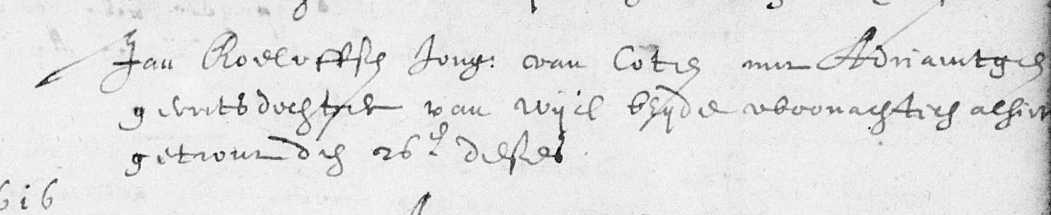 Jan Roeloffsz Jong: van Coten met Adriaentgen
gerrits dochter van wijck beyde woonachtich alhier
getrout den 26e deses
616